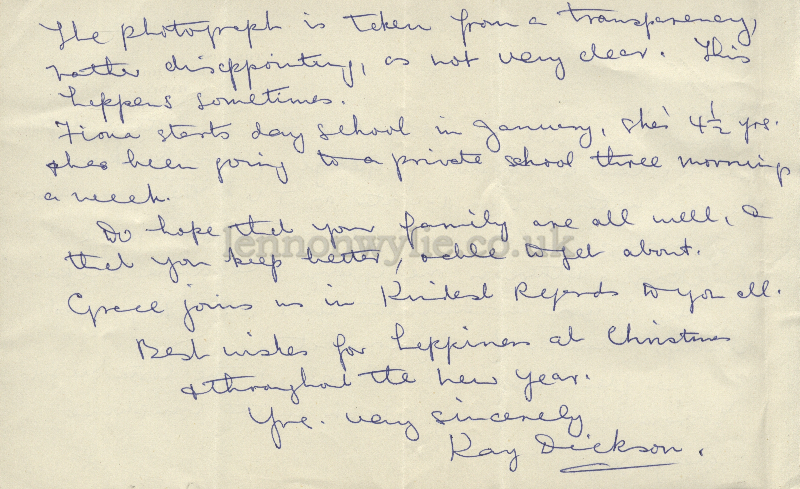 The photograph is taken from a transparency,
rather disappointing, as not very clear. This
happens sometimes.
Fiona starts day school in January, she's 4½ yrs.
& has been going to a private school three mornings
a week.
Do hope that your family are all well, &
that you keep better, & able to get about.
Grace joins us in Kindest Regards to you all.
Best wishes for happiness at Christmas
& throughout the new year.
Yrs. very sincerely
Kay Dickson.
lennonwylie.co.uk